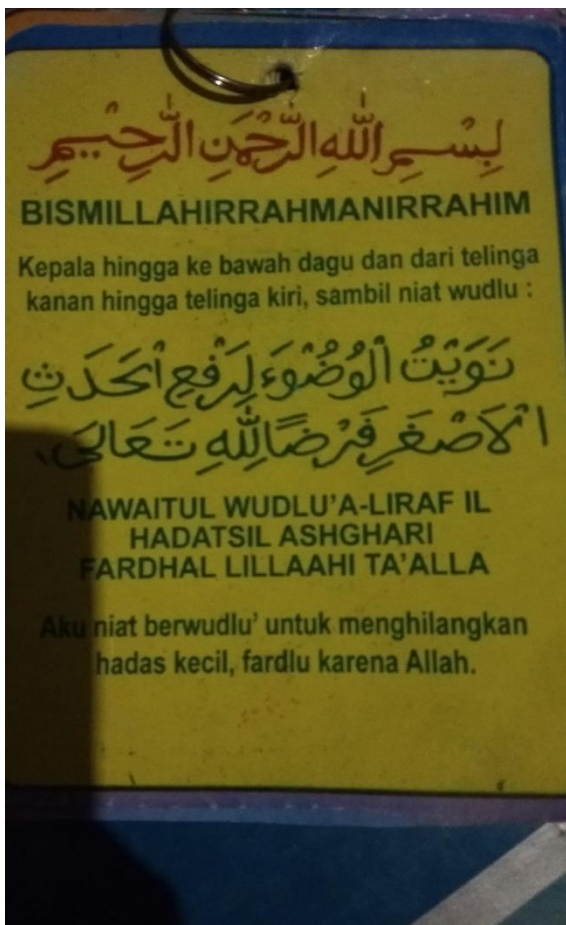 بِسْمِ اللهِ الرَّحْمٰنِ الرَّحِيْمِ
BISMILLAHIRRAHMANIRRAHIM
Kepala hingga ke bawah dagu dan dari telinga
kanan hingga telinga kiri, sambil niat wudlu :
نَوَيْتُ الْوُضُوْءَ لِرَفْعِ الْحَدَثِ
الْاَصْغَرِ فَرْضًا لِلّٰهِ تَعَالَى
NAWAITUL WUDLU'A-LIRAF IL
HADATSIL ASHGHARI
FARDHAL LILLAAHI TA'ALLA
Aku niat berwudlu' untuk menghilangkan
hadas kecil, fardlu karena Allah.